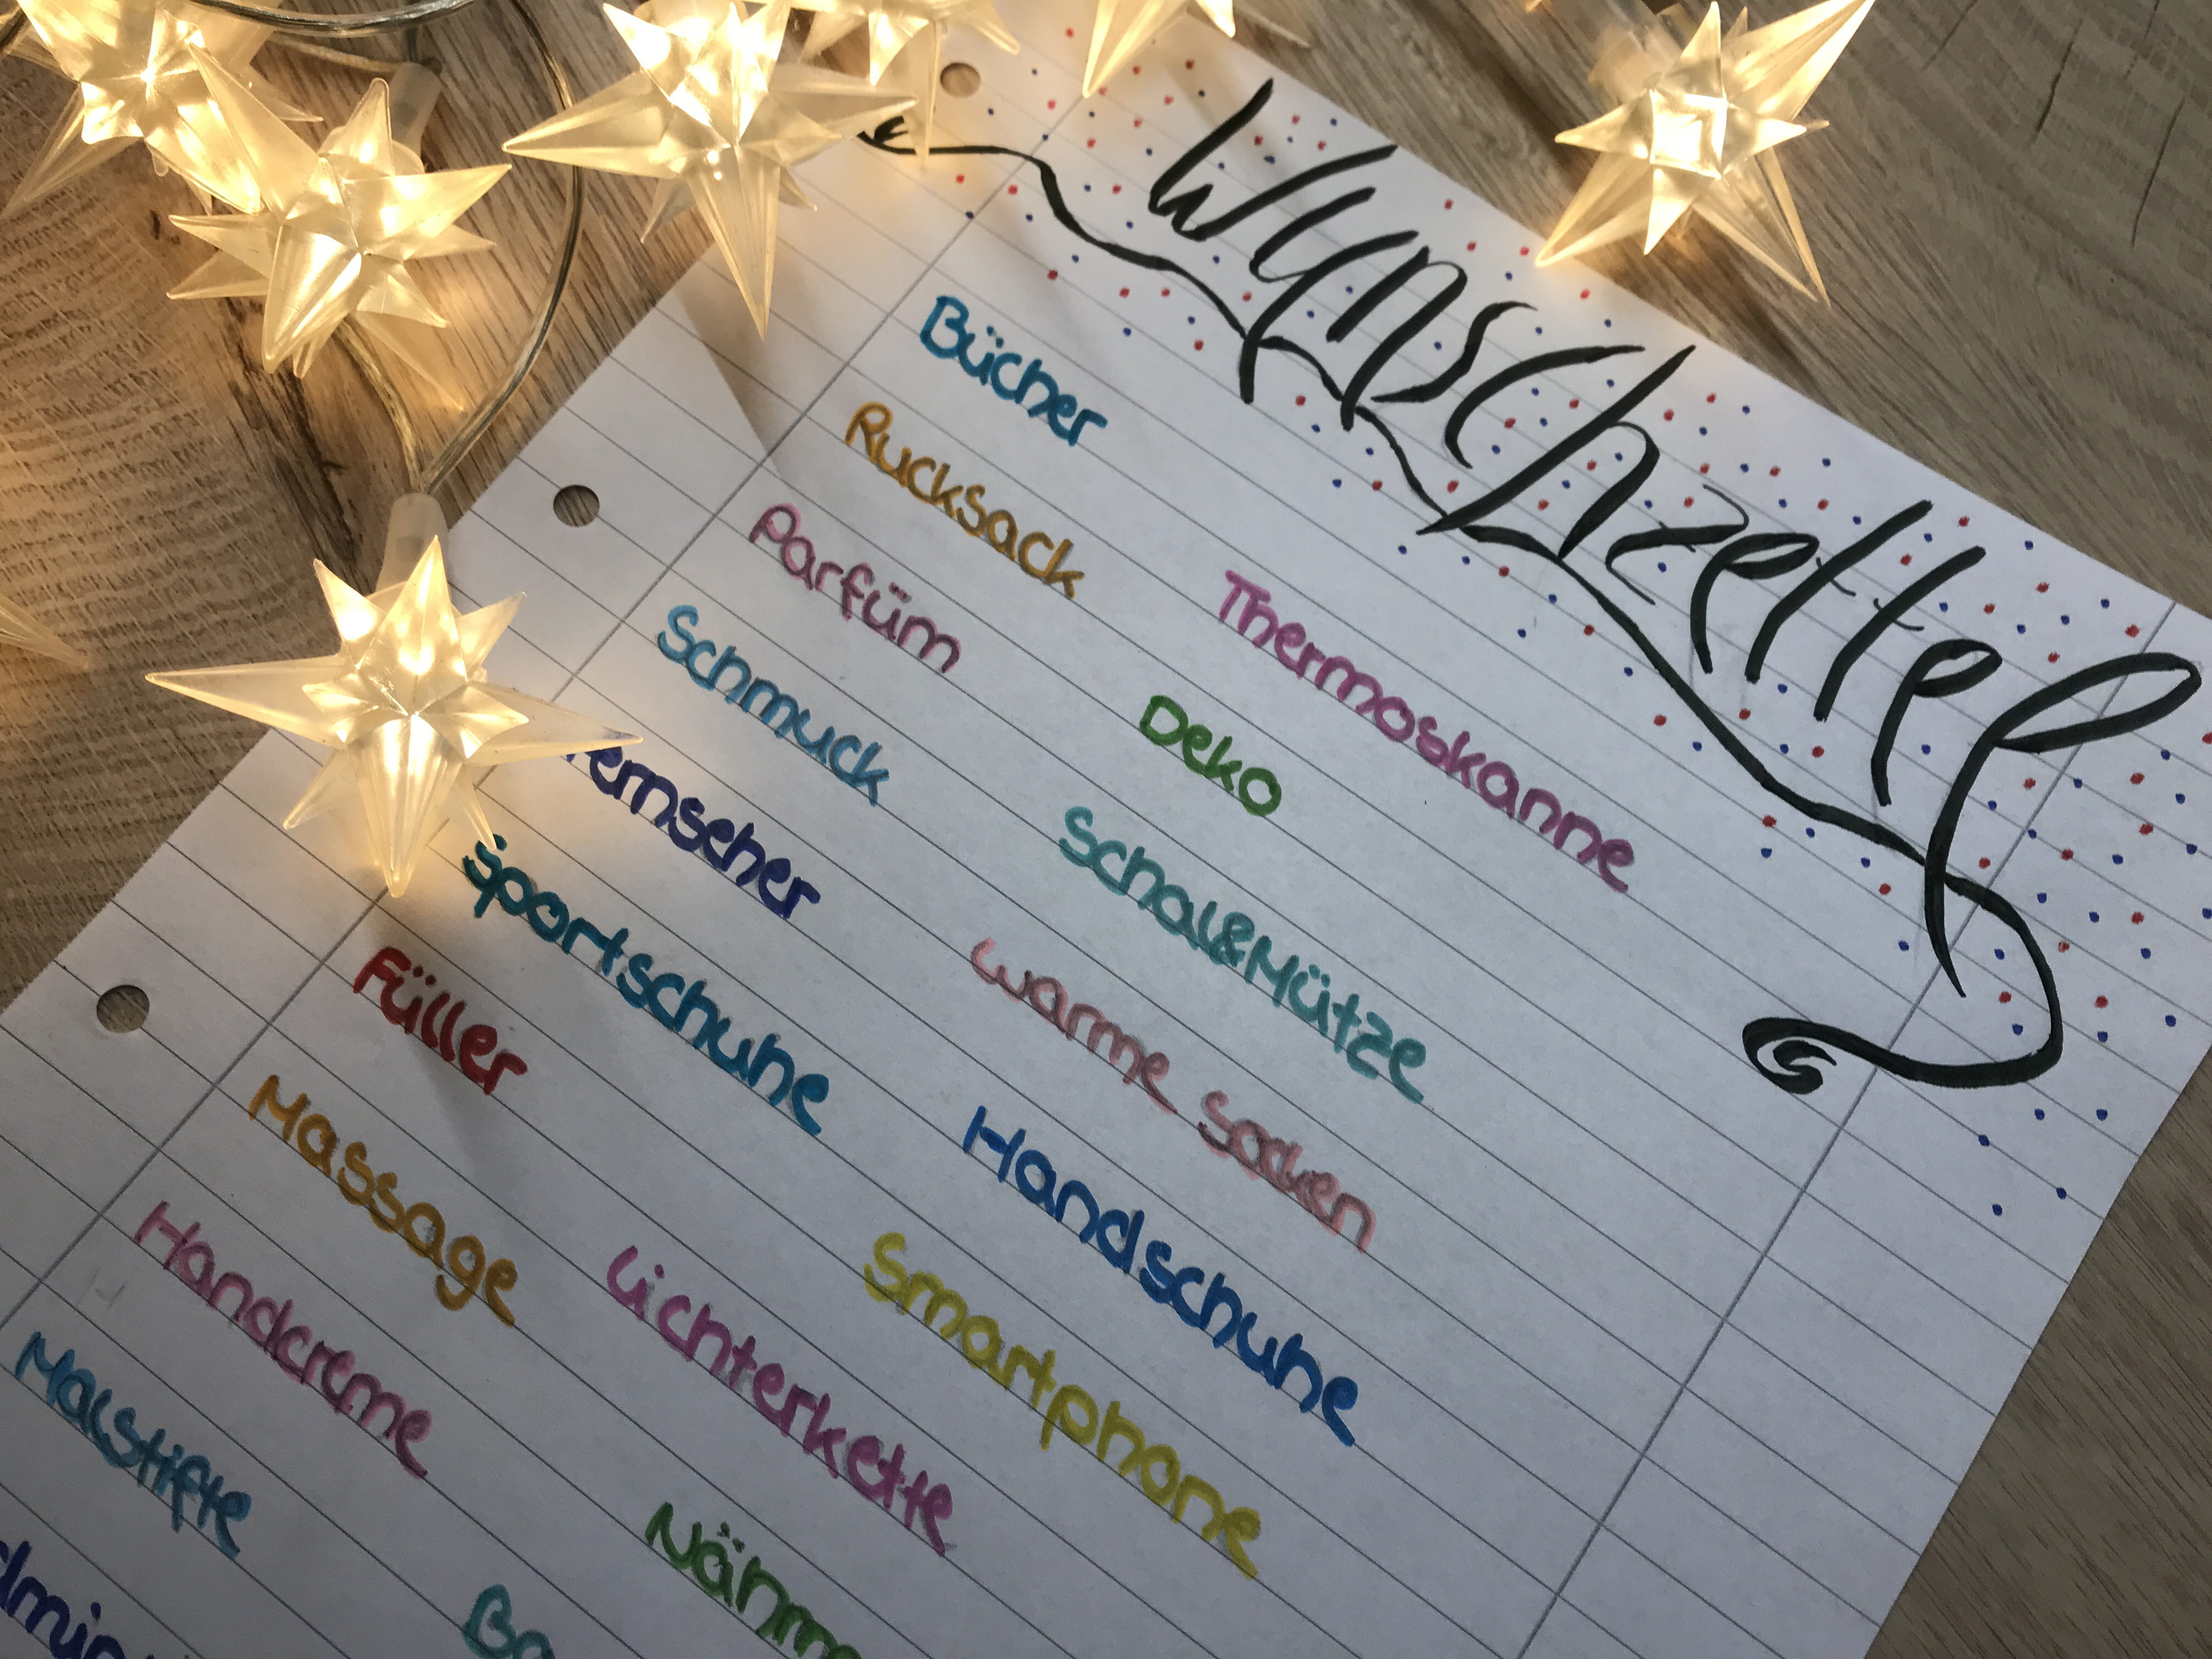 Wunschzettel
Bücher
Rucksack
Parfüm
Schmuck
Fernseher
Sportschuhe
Füller
Massage
Handcreme
Malstifte
Thermoskanne
Deko
Schal&Mütze
warme Socken
Handschuhe
Smartphone
Lichterkette